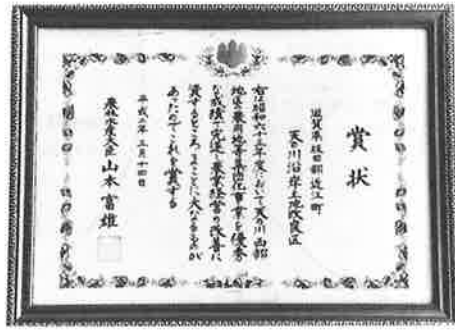 賞状
滋賀県坂田郡近江町
天の川沿岸土地改良区
右は昭和六十三年度において天の川西部
地区の農用地等集団化事業を優秀
な成績で完遂し農業経営の改善に
資するところまことに大なるものが
あったのでこれを賞する
平成二年三月十四日
農林水産大臣 山本富雄